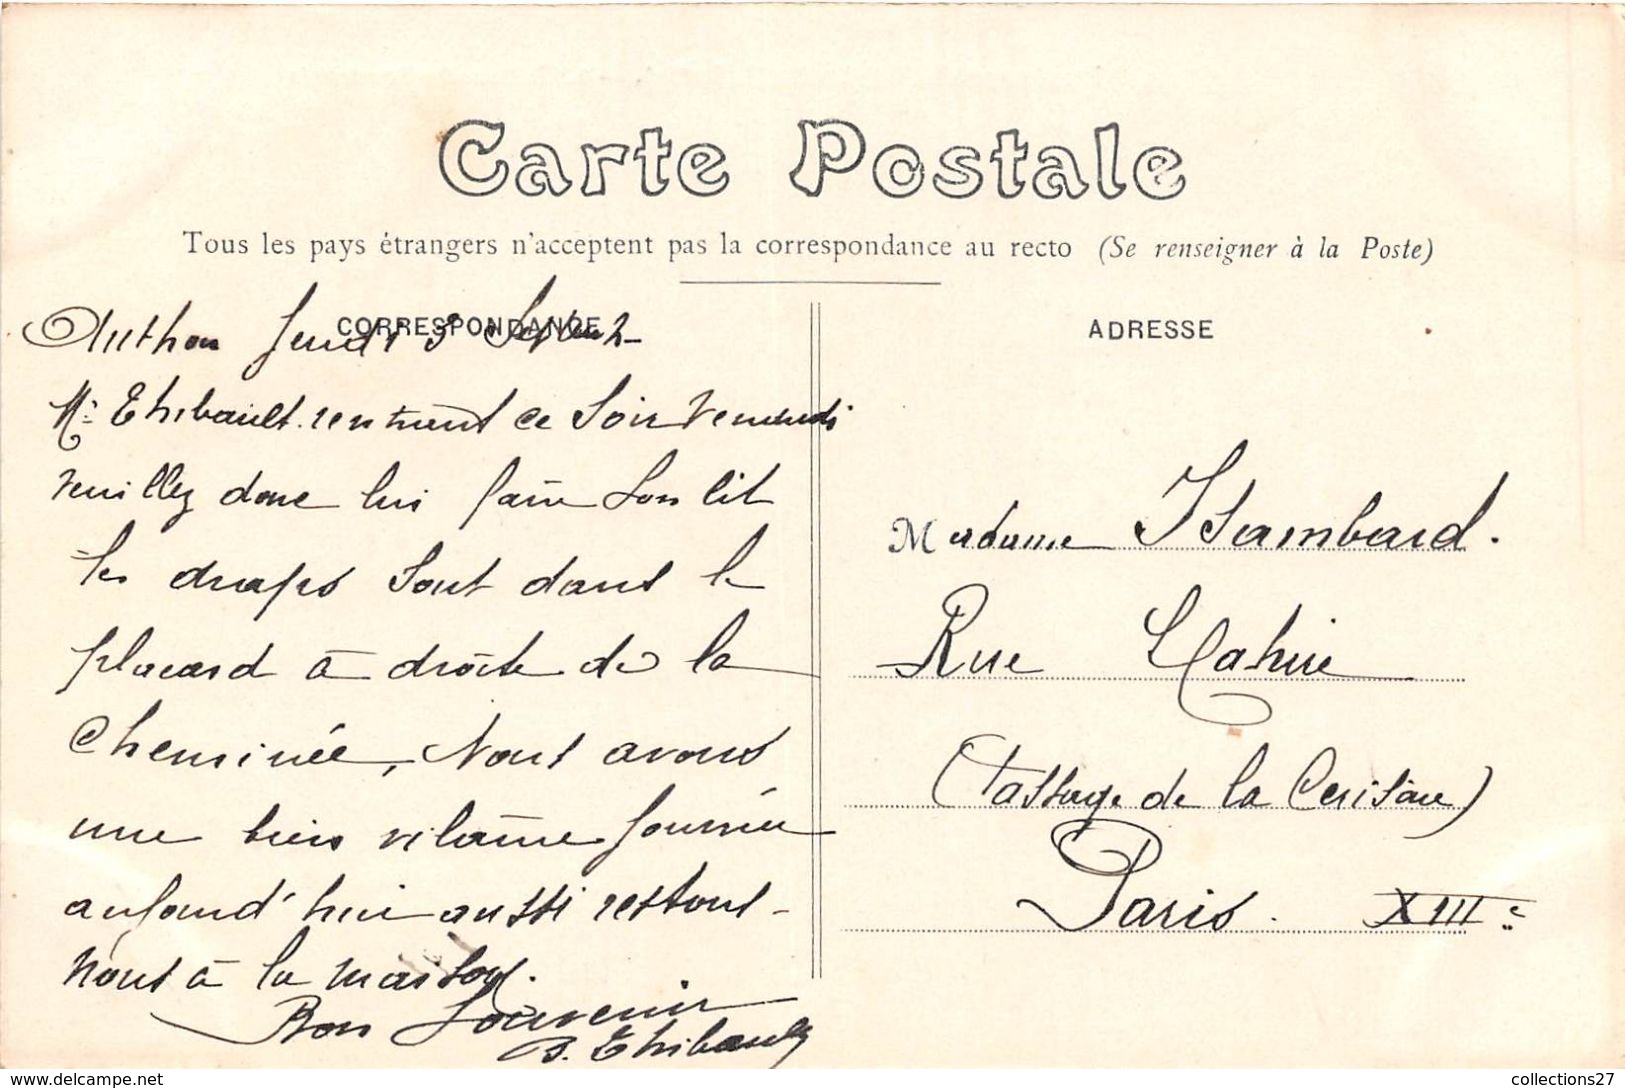 Carte Postale
Tous les pays étrangers n'acceptent pas la correspondance au recto (Se renseigner à la Poste)
CORRESPONDANCE
ADRESSE
Authon Jeudi 3
Mr Thibault rentrent ce Soir Vendredi
veuillez donc lui faire Son lit
les draps Sont dans le
placard à droite de la
Cheminée, Nous avons
une bien vilaine journée
aujourd'hui aussi restons-
Nous à la maison.
Bon Souvenir
B. Thibault
Madame Isambard.
Rue Lahire
(Passage de la Cerisaie)
Paris. XIIIe
collections27